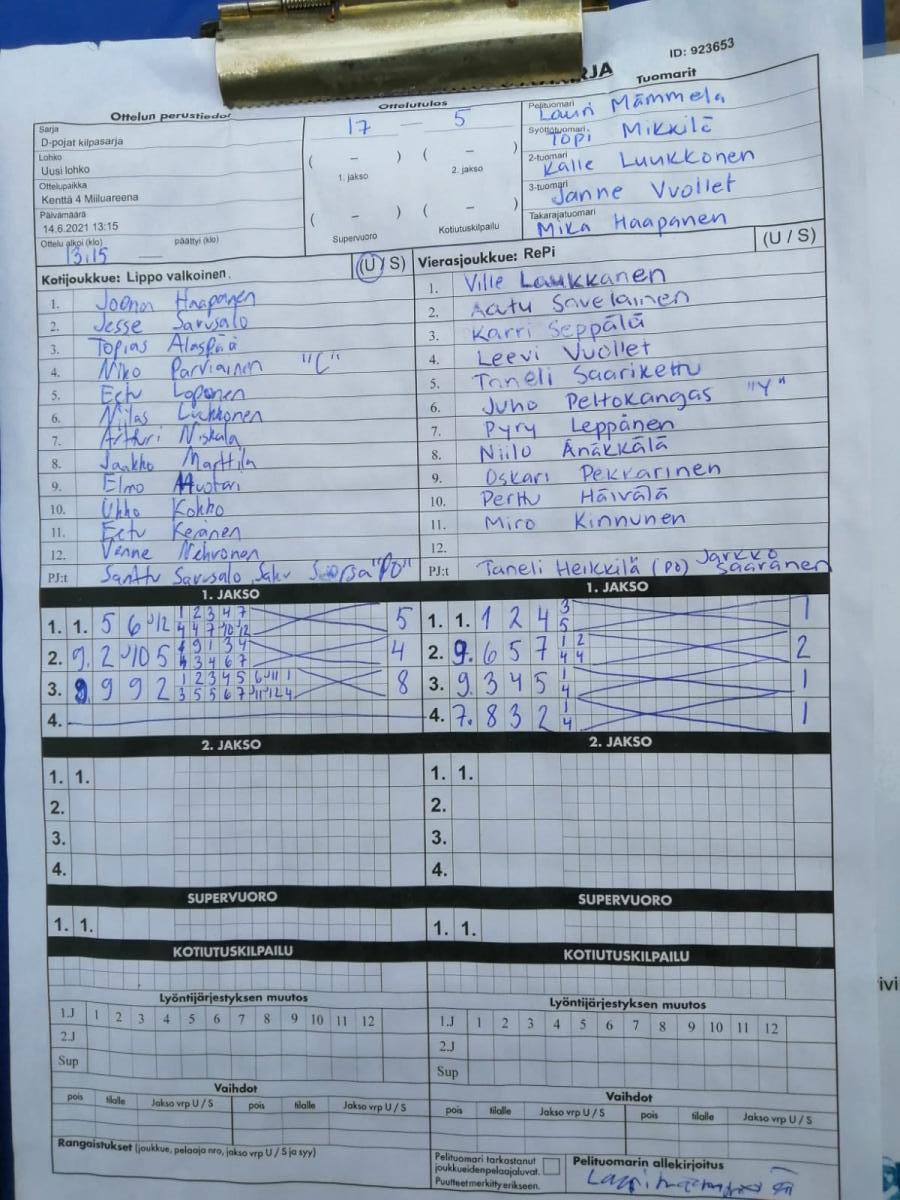 RJA
ID: 923653
Ottelun perustiedot
Ottelutulos
Tuomarit
Sarja
D-pojat kilpasarja
Lohko
Uusi lohko
Ottelupaikka
Kenttä 4 Miiluareena
Päivämäärä
14.6.2021 13:15
Ottelu alkoi (klo) päättyi (klo)
13.15
17 – 5
( – ) ( – )
1. jakso 2. jakso
( – ) ( – )
Supervuoro Kotiutuskilpailu
Pelituomari
Lauri Mämmelä
Syöttötuomari
Topi Mikkilä
2-tuomari
Kalle Luukkonen
3-tuomari
Janne Vuollet
Takarajatuomari
Mika Haapanen
Kotijoukkue: Lippo valkoinen. (U / S)
1. Joona Haapanen
2. Jesse Sarusalo
3. Topias Alaspää
4. Niko Parviainen "C"
5. Eetu Loponen
6. Niilas Luhkonen
7. Artturi Niskala
8. Jaakko Marttila
9. Elmo Muotari
10. Ukko Kokko
11. Eetu Keränen
12. Venne Nehvonen
PJ:t Santtu Sarusalo, Saku Suorsa "PO"
Vierasjoukkue: RePi (U / S)
1. Ville Laukkanen
2. Aatu Savelainen
3. Karri Seppälä
4. Leevi Vuollet
5. Taneli Saarikettu
6. Juho Peltokangas "Y"
7. Pyry Leppänen
8. Niilo Änäkkälä
9. Oskari Pekkarinen
10. Perttu Häivälä
11. Miro Kinnunen
12.
PJ:t Taneli Heikkilä (PO) Jarkko Saaranen
1. JAKSO
1. 1. 5 6 J12 1 2 3 4 7 5
4 4 7 10 12
2. 9. 2 J10 5 4 9 1 3 4 4
4 3 4 6 7
3. 9 9 9 2 1 2 3 4 5 6 J11 1 8
3 5 5 6 7 J11 J12 4
4.
1. JAKSO
1. 1. 1 2 4 3 1
5
2. 9. 6 5 7 1 2 2
4 4
3. 9. 3 4 5 1 1
4
4. 7. 8 3 2 1 1
4
2. JAKSO
1. 1.
2.
3.
4.
2. JAKSO
1. 1.
2.
3.
4.
SUPERVUORO
1. 1.
SUPERVUORO
1. 1.
KOTIUTUSKILPAILU
KOTIUTUSKILPAILU
Lyöntijärjestyksen muutos
1.J 1 2 3 4 5 6 7 8 9 10 11 12
2.J
Sup
Lyöntijärjestyksen muutos
1.J 1 2 3 4 5 6 7 8 9 10 11 12
2.J
Sup
Vaihdot
pois tilalle Jakso vrp U / S pois tilalle Jakso vrp U / S
Vaihdot
pois tilalle Jakso vrp U / S pois tilalle Jakso vrp U / S
Rangaistukset (joukkue, pelaaja nro, jakso vrp U / S ja syy)
Pelituomari tarkastanut
joukkueidenpelaajaluvat.
Puutteet merkitty erikseen.
Pelituomarin allekirjoitus
ivi